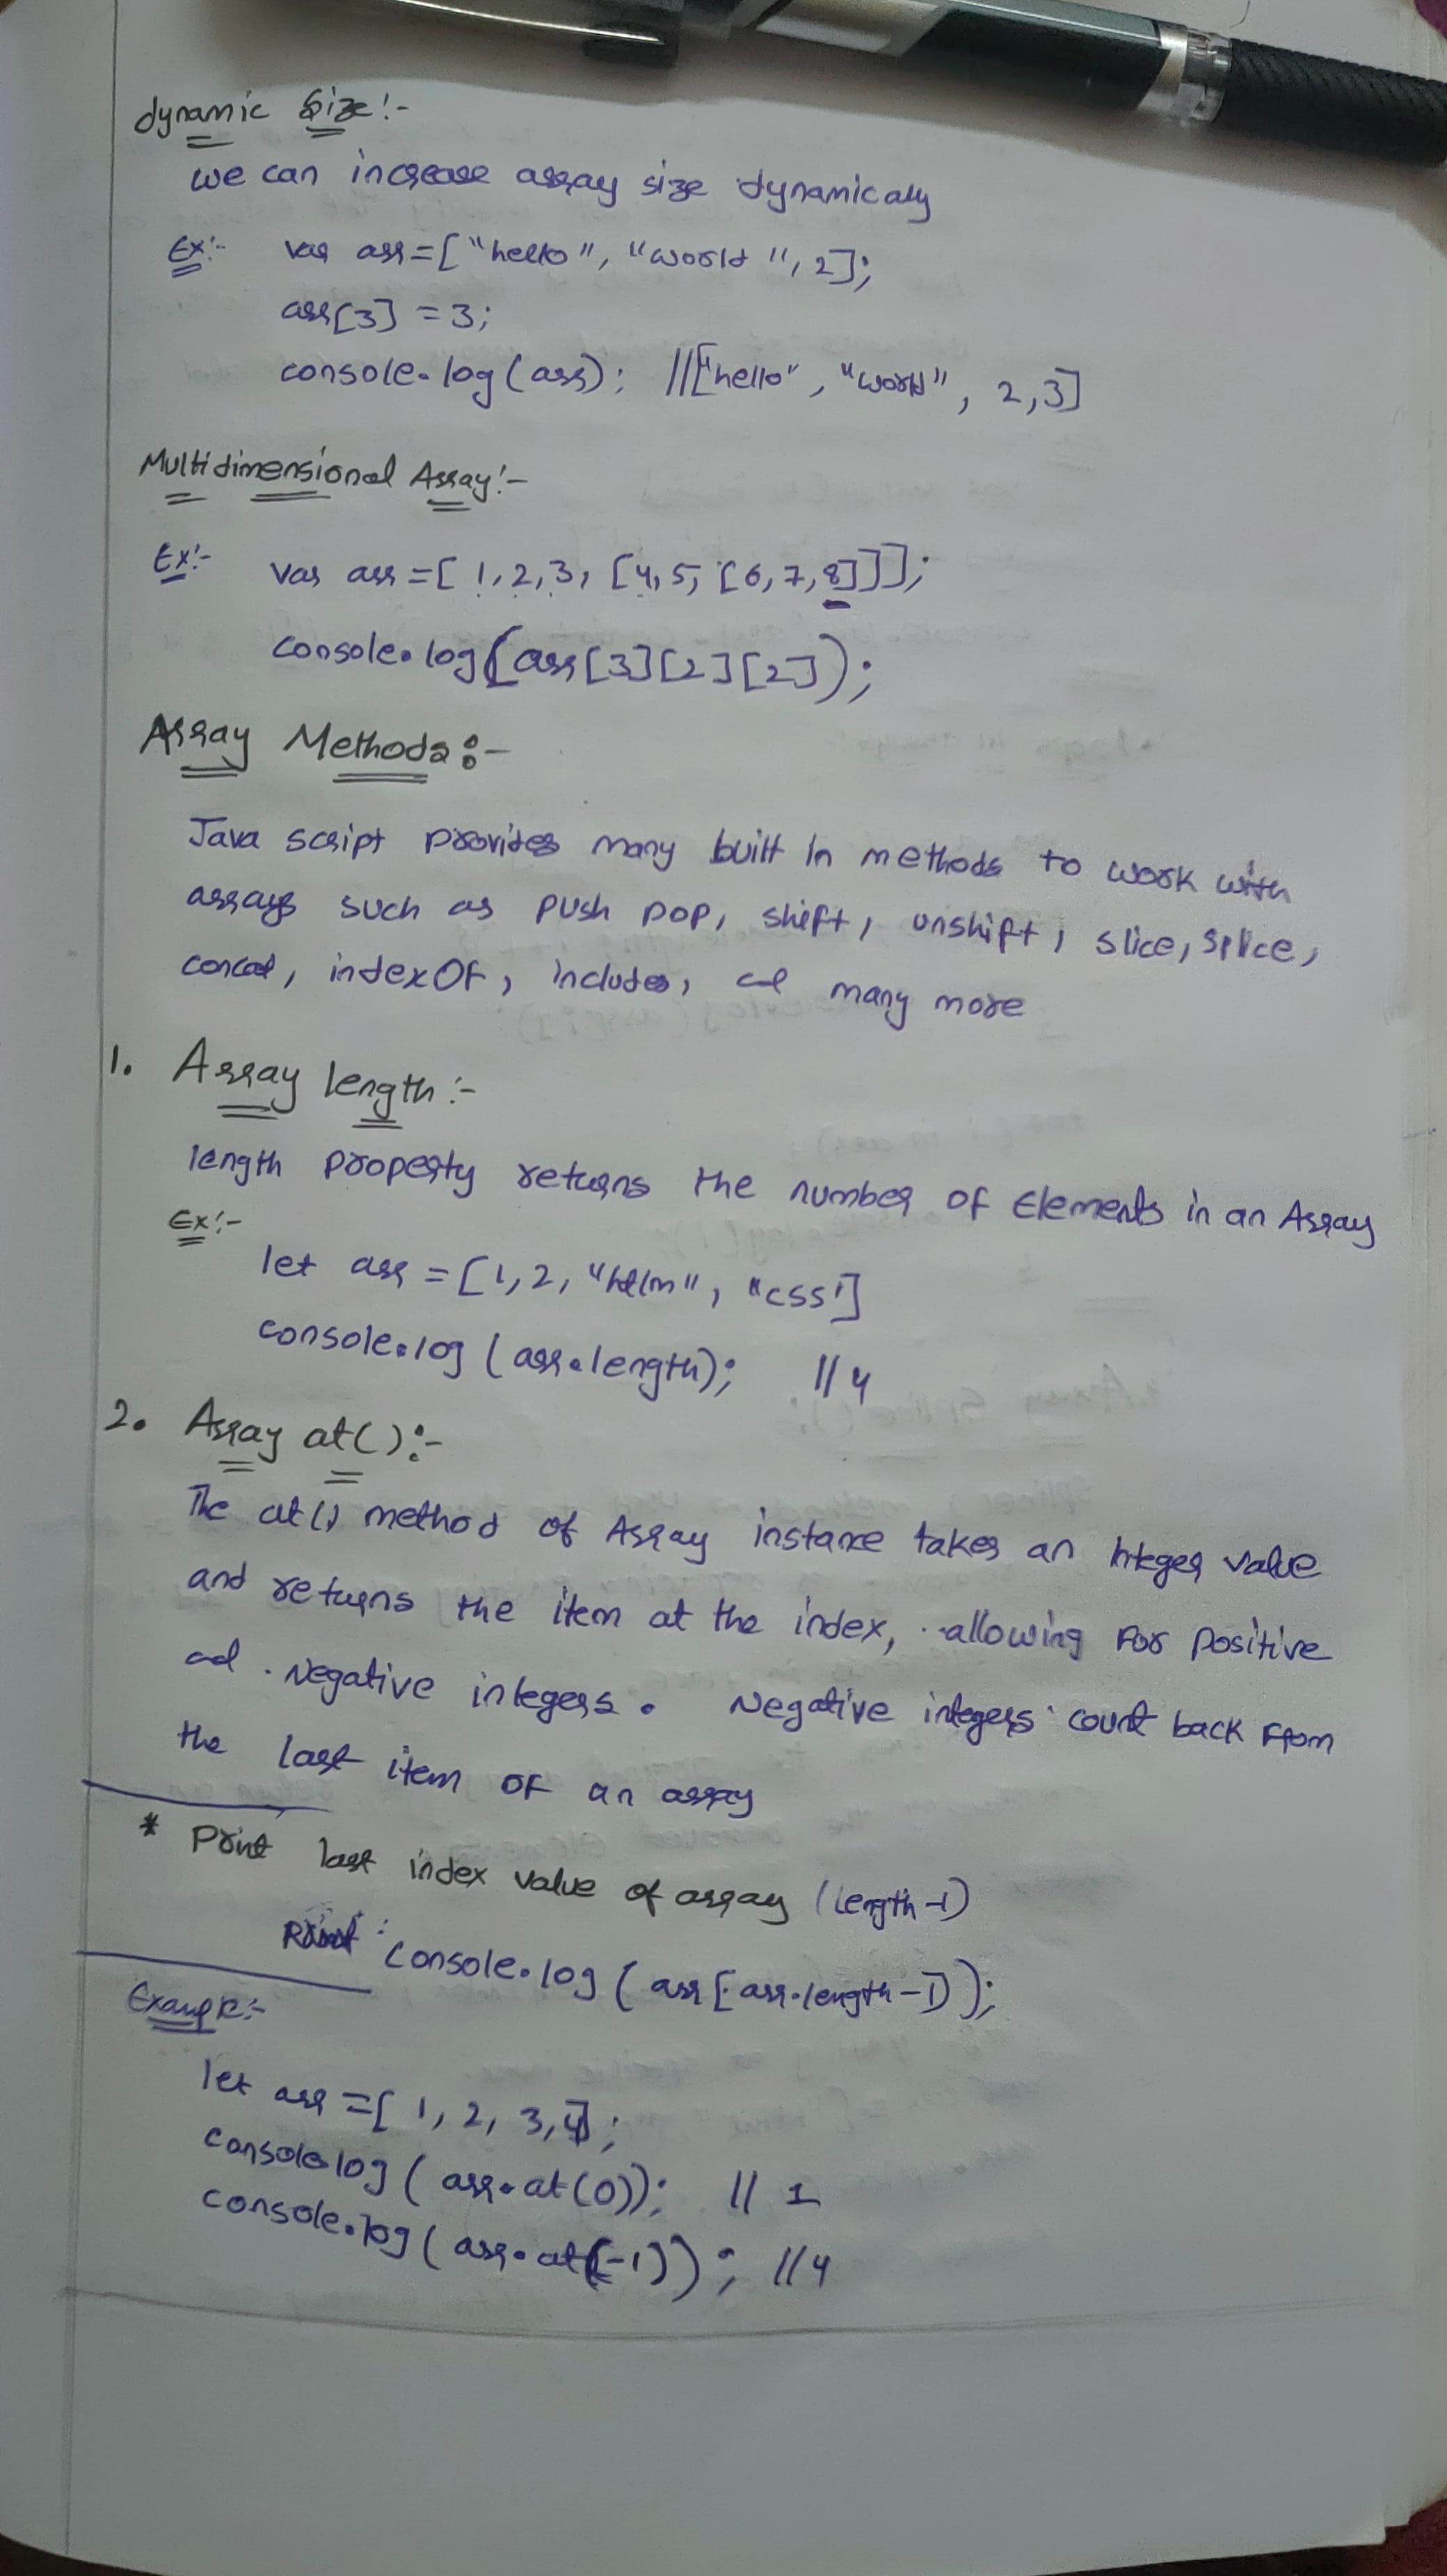 dynamic Size:-
we can increase array size dynamicaly
Ex:- var arr=["hello", "world", 2];
arr[3] = 3;
console.log(arr); //["hello", "world", 2,3]
Multidimensional Array:-
Ex:- var arr=[1,2,3, [4,5, [6,7,8]]];
console.log(arr[3][2][2]);
Array Methods:-
Java script provides many built in methods to work with
arrays such as push pop, shift, unshift, slice, splice,
concat, indexOf, includes, and many more
1. Array length:-
length property returns the number of Elements in an Array
Ex:-
let arr = [1,2, "htlm", "css"]
console.log(arr.length); //4
2. Array at():-
The at() method of Array instance takes an Integer value
and returns the item at the index, allowing for positive
and Negative integers. Negative integers count back from
the last item of an array
* Print last index value of array (length-1)
console.log(arr[arr.length-1]);
Example:-
let arr =[1, 2, 3,4];
console.log(arr.at(0)); // 1
console.log(arr.at(-1)); //4